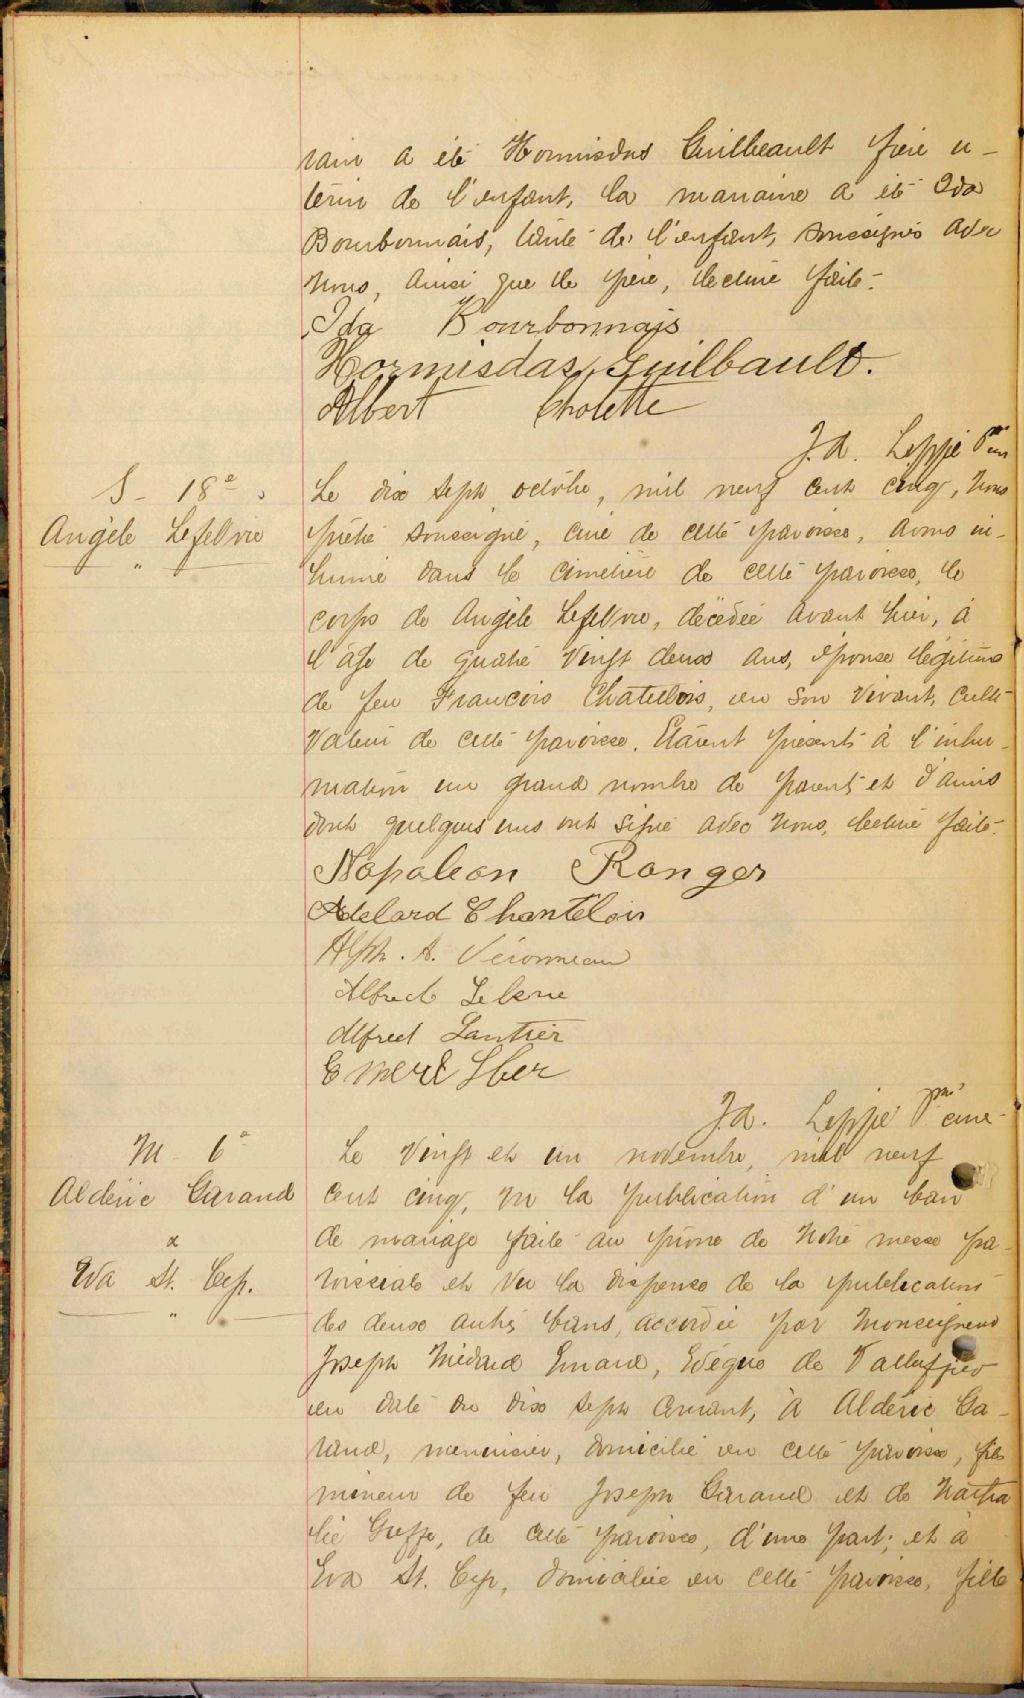 rain a été Hormisdas Guilbeault frère u-
térin de l'enfant, la marraine a été Ida
Bourbonnais, tante de l'enfant, soussignés avec
nous, ainsi que le père, lecture faite.
Ida Bourbonnais
Hormisdas Guilbault.
Albert Cholette
J.A. Lippé Ptre cur
S - 18e
Angèle Lefebvre
Le dix sept octobre, mil neuf cent cinq, nous
prêtre soussigné, curé de cette paroisse, avons in-
humé dans le cimetière de cette paroisse, le
corps de Angèle Lefebvre, décédée avant hier, à
l'âge de quatre vingt deux ans, épouse légitime
de feu François Chatelois, en son vivant, culti-
vateur de cette paroisse. Etaient présents à l'inhu-
mation un grand nombre de parents et d'amis
dont quelques uns ont signé avec nous, lecture faite.
Napoleon Ranger
Adelard Chantelois
Alph. A. Véronneau
Alfred
Alfred Lantier
J.A. Lippé Ptre curé
M 6e
Aldéric Garand
&
Eva St. Cyr.
Le vingt et un novembre, mil neuf
cent cinq, vu la publication d'un ban
de mariage faite au prône de notre messe pa-
roissiale et vu la dispense de la publication
des deux autres bans, accordée par Monseigneur
Joseph Médard Emard, Evêque de Valleyfield
en date du dix sept courant, à Aldéric Ga-
rand, menuisier, domicilié en cette paroisse, fils
mineur de feu Joseph Garand et de Natha
lie Greffe, de cette paroisse, d'une part; et à
Eva St. Cyr, domiciliée en cette paroisse, fille